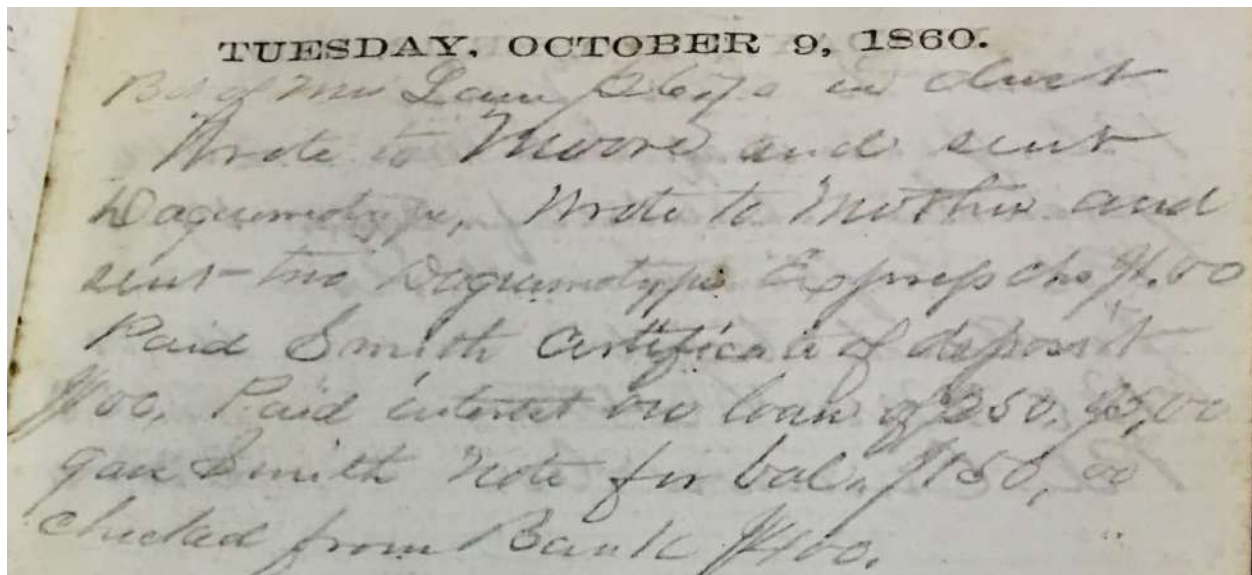 TUESDAY, OCTOBER 9, 1860.
in dust
Wrote to Moore and sent
Daguerreotype, Wrote to Mother and
sent two Daguerreotypes Express chs $1.00
Paid Smith Certificate of deposit
$100, Paid interest on loan of 250. $5,00
gave Smith Note for bal. $150,00
checked from Bank $400.